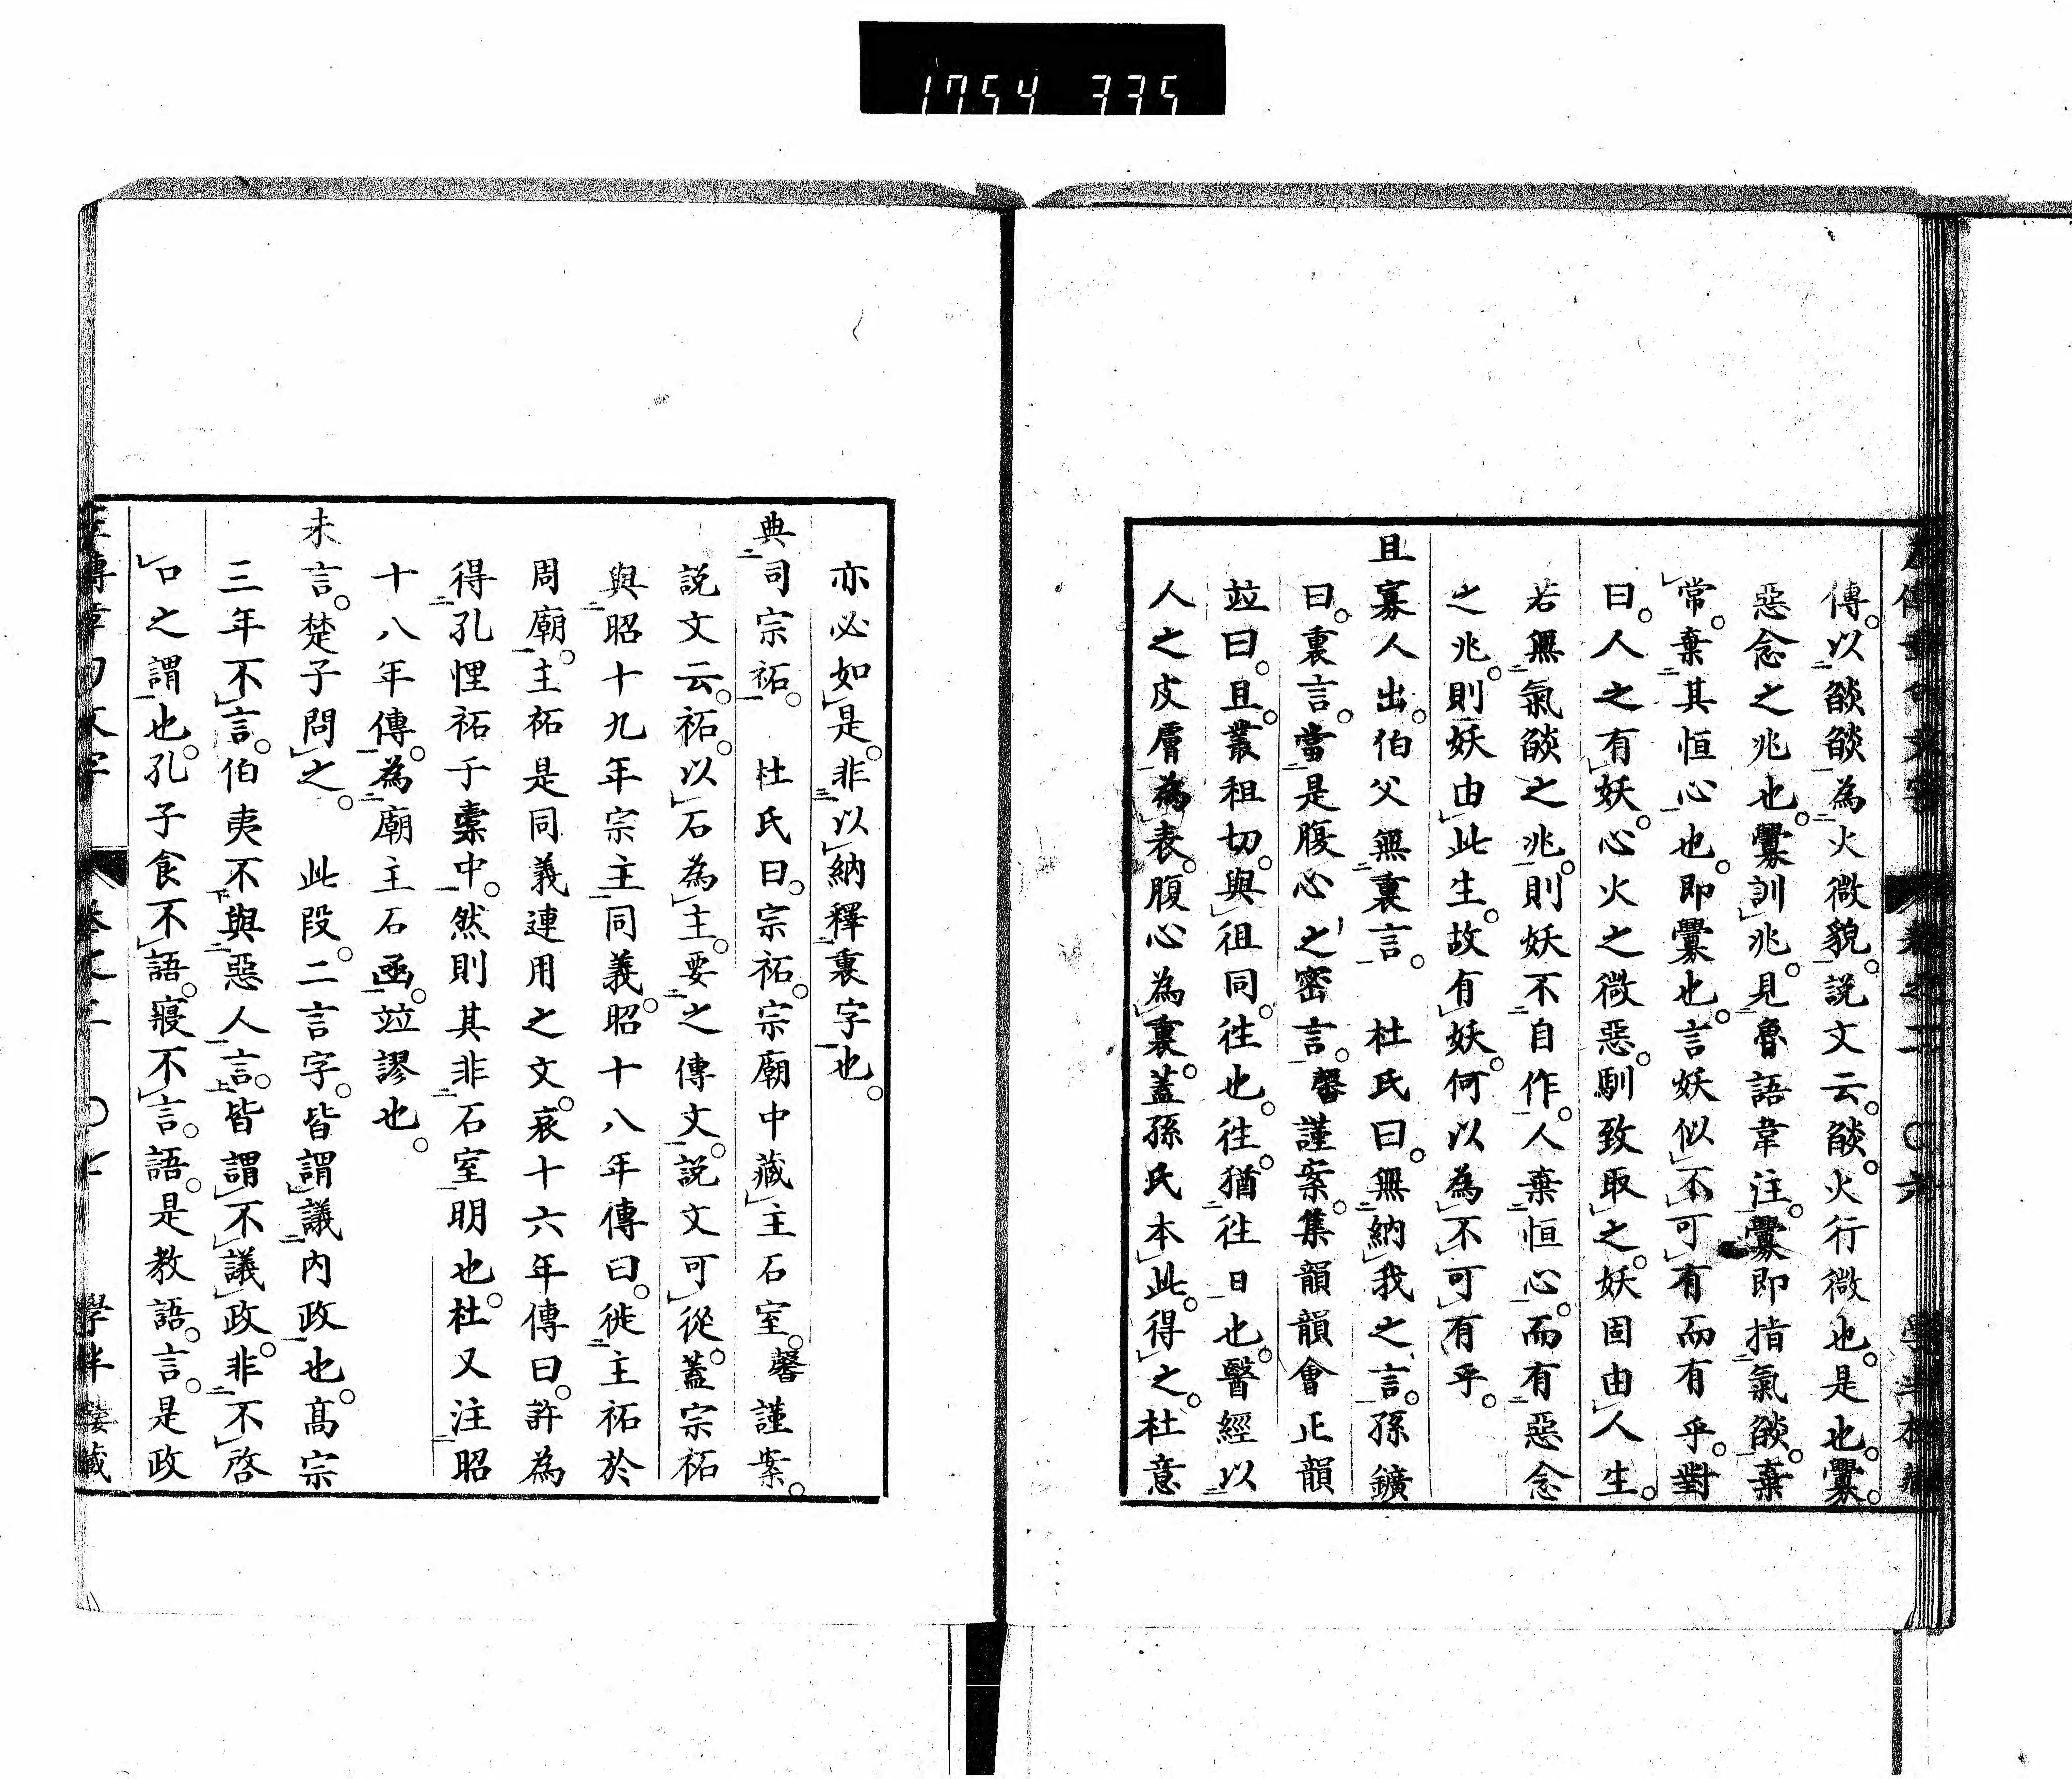 1754 335
傳。以燄燄為火微貌。説文云。燄。火行微也。是也。釁。
惡念之兆也。釁訓兆。見魯語韋注。釁即指氣燄。棄
常。棄其恒心也。即釁也。言妖似不可有而有乎。對
曰。人之有妖。心火之微惡。馴致取之。妖固由人生。
若無氣燄之兆。則妖不自作。人棄恒心。而有惡念
之兆。則妖由此生。故有妖。何以為不可有乎。
且寡人出。伯父無裏言。　杜氏曰。無納我之言。孫鑛
曰。裏言。當是腹心之密言。馨謹案。集韻韻會正韻
竝曰。且。叢租切。與徂同。往也。往。猶往日也。醫經以
人之皮膚為表。腹心為裏。蓋孫氏本此。得之。杜意
亦必如是。非以納釋裏字也。
典司宗祏。　杜氏曰。宗祏。宗廟中藏主石室。馨謹案。
説文云。祏。以石為主。要之傳文。説文可從。蓋宗祏
與昭十九年宗主同義。昭十八年傳曰。徙主祏於
周廟。主祏是同義連用之文。哀十六年傳曰。許為
得孔悝祏于橐中。然則其非石室明也。杜又注昭
十八年傳。為廟主石函。竝謬也。
未言。楚子問之。　此段。二言字。皆謂議内政也。高宗
三年不言。伯夷不與惡人言。皆謂不議政。非不啓
口之謂也。孔子食不語。寢不言。語。是教語。言。是政
左傳章句文字　卷之二　〇七　學半樓藏